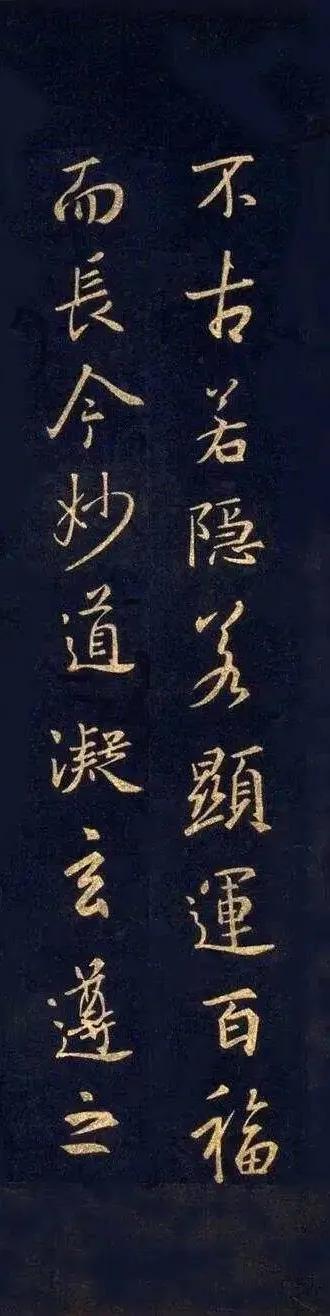 不古若隱若顯運百福
而長今妙道凝玄遵之